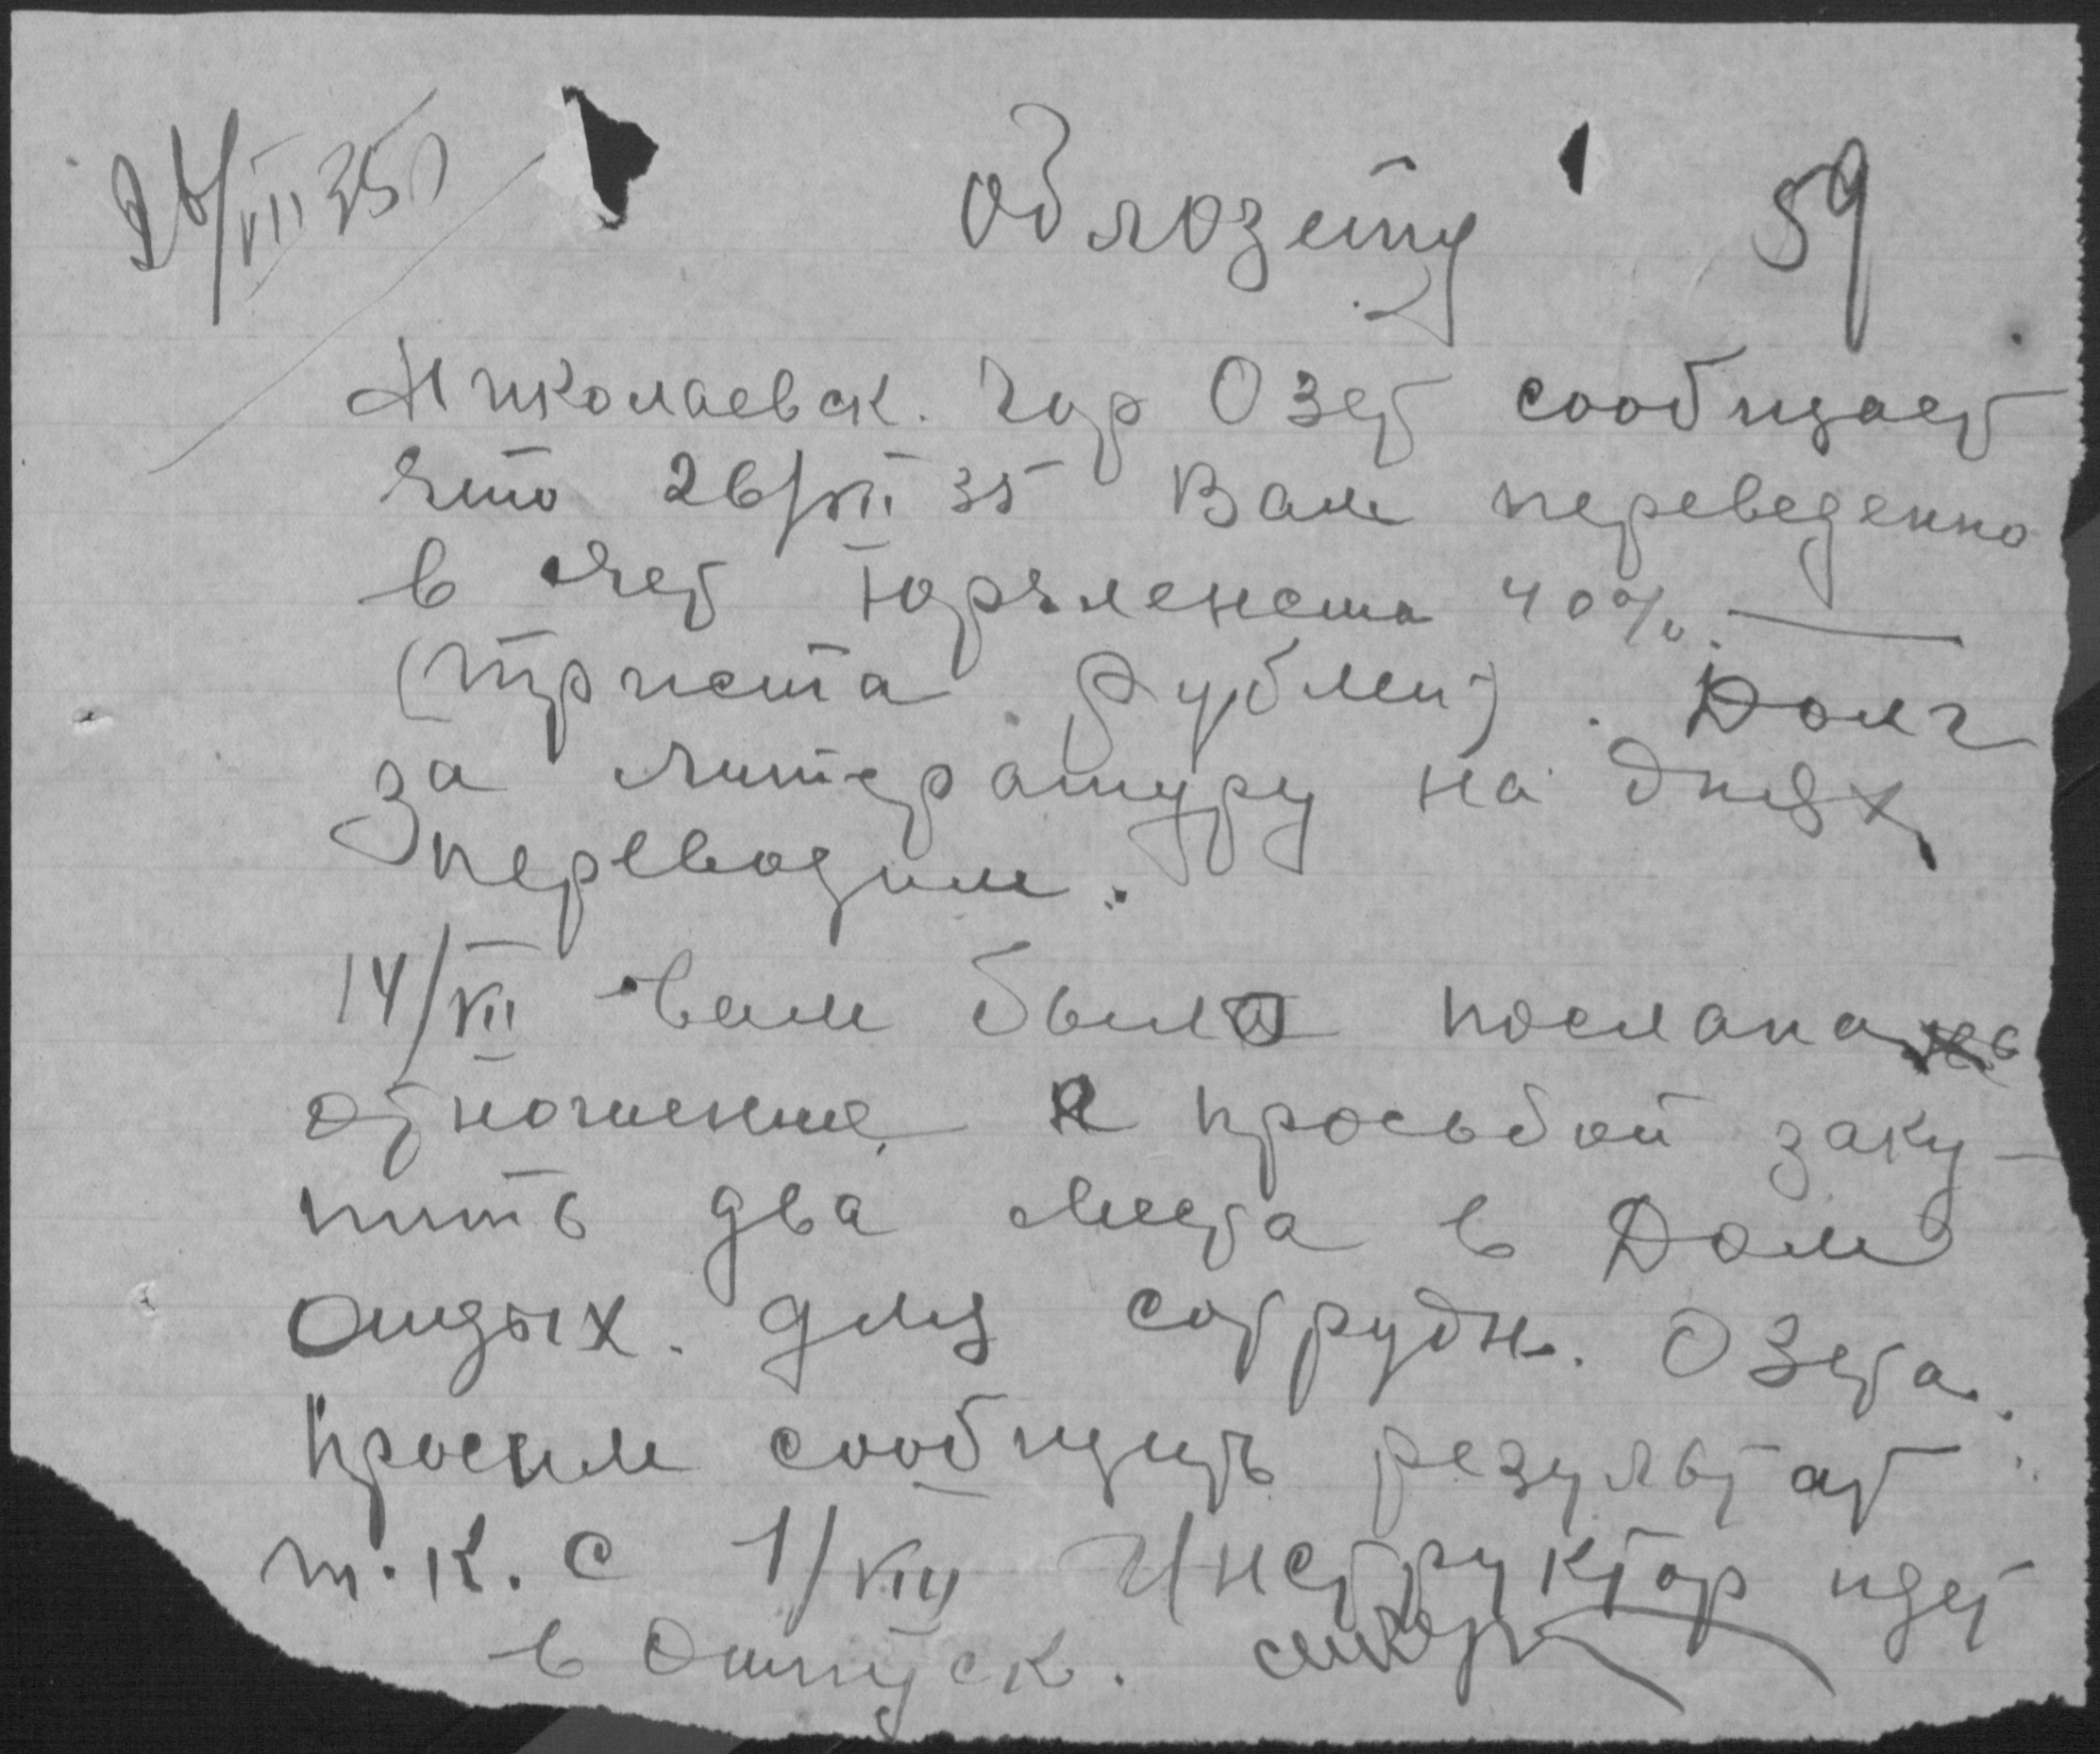 26/VII 35 г
Облозету 59
Николаевск. Гор Озет сообщает
что 26/VII 35 Вам переведенно
в счет Юрчленства 40%. —
(триста рублей). Долг
за литературу на днях
переводим.
14/VII вам было послано
отношение с просьбой заку-
пить два места в Дом
отдых. для сотрудн. Озета.
Просим сообщить результат
т.к. с 1/VIII Инструктор идет
в отпуск.